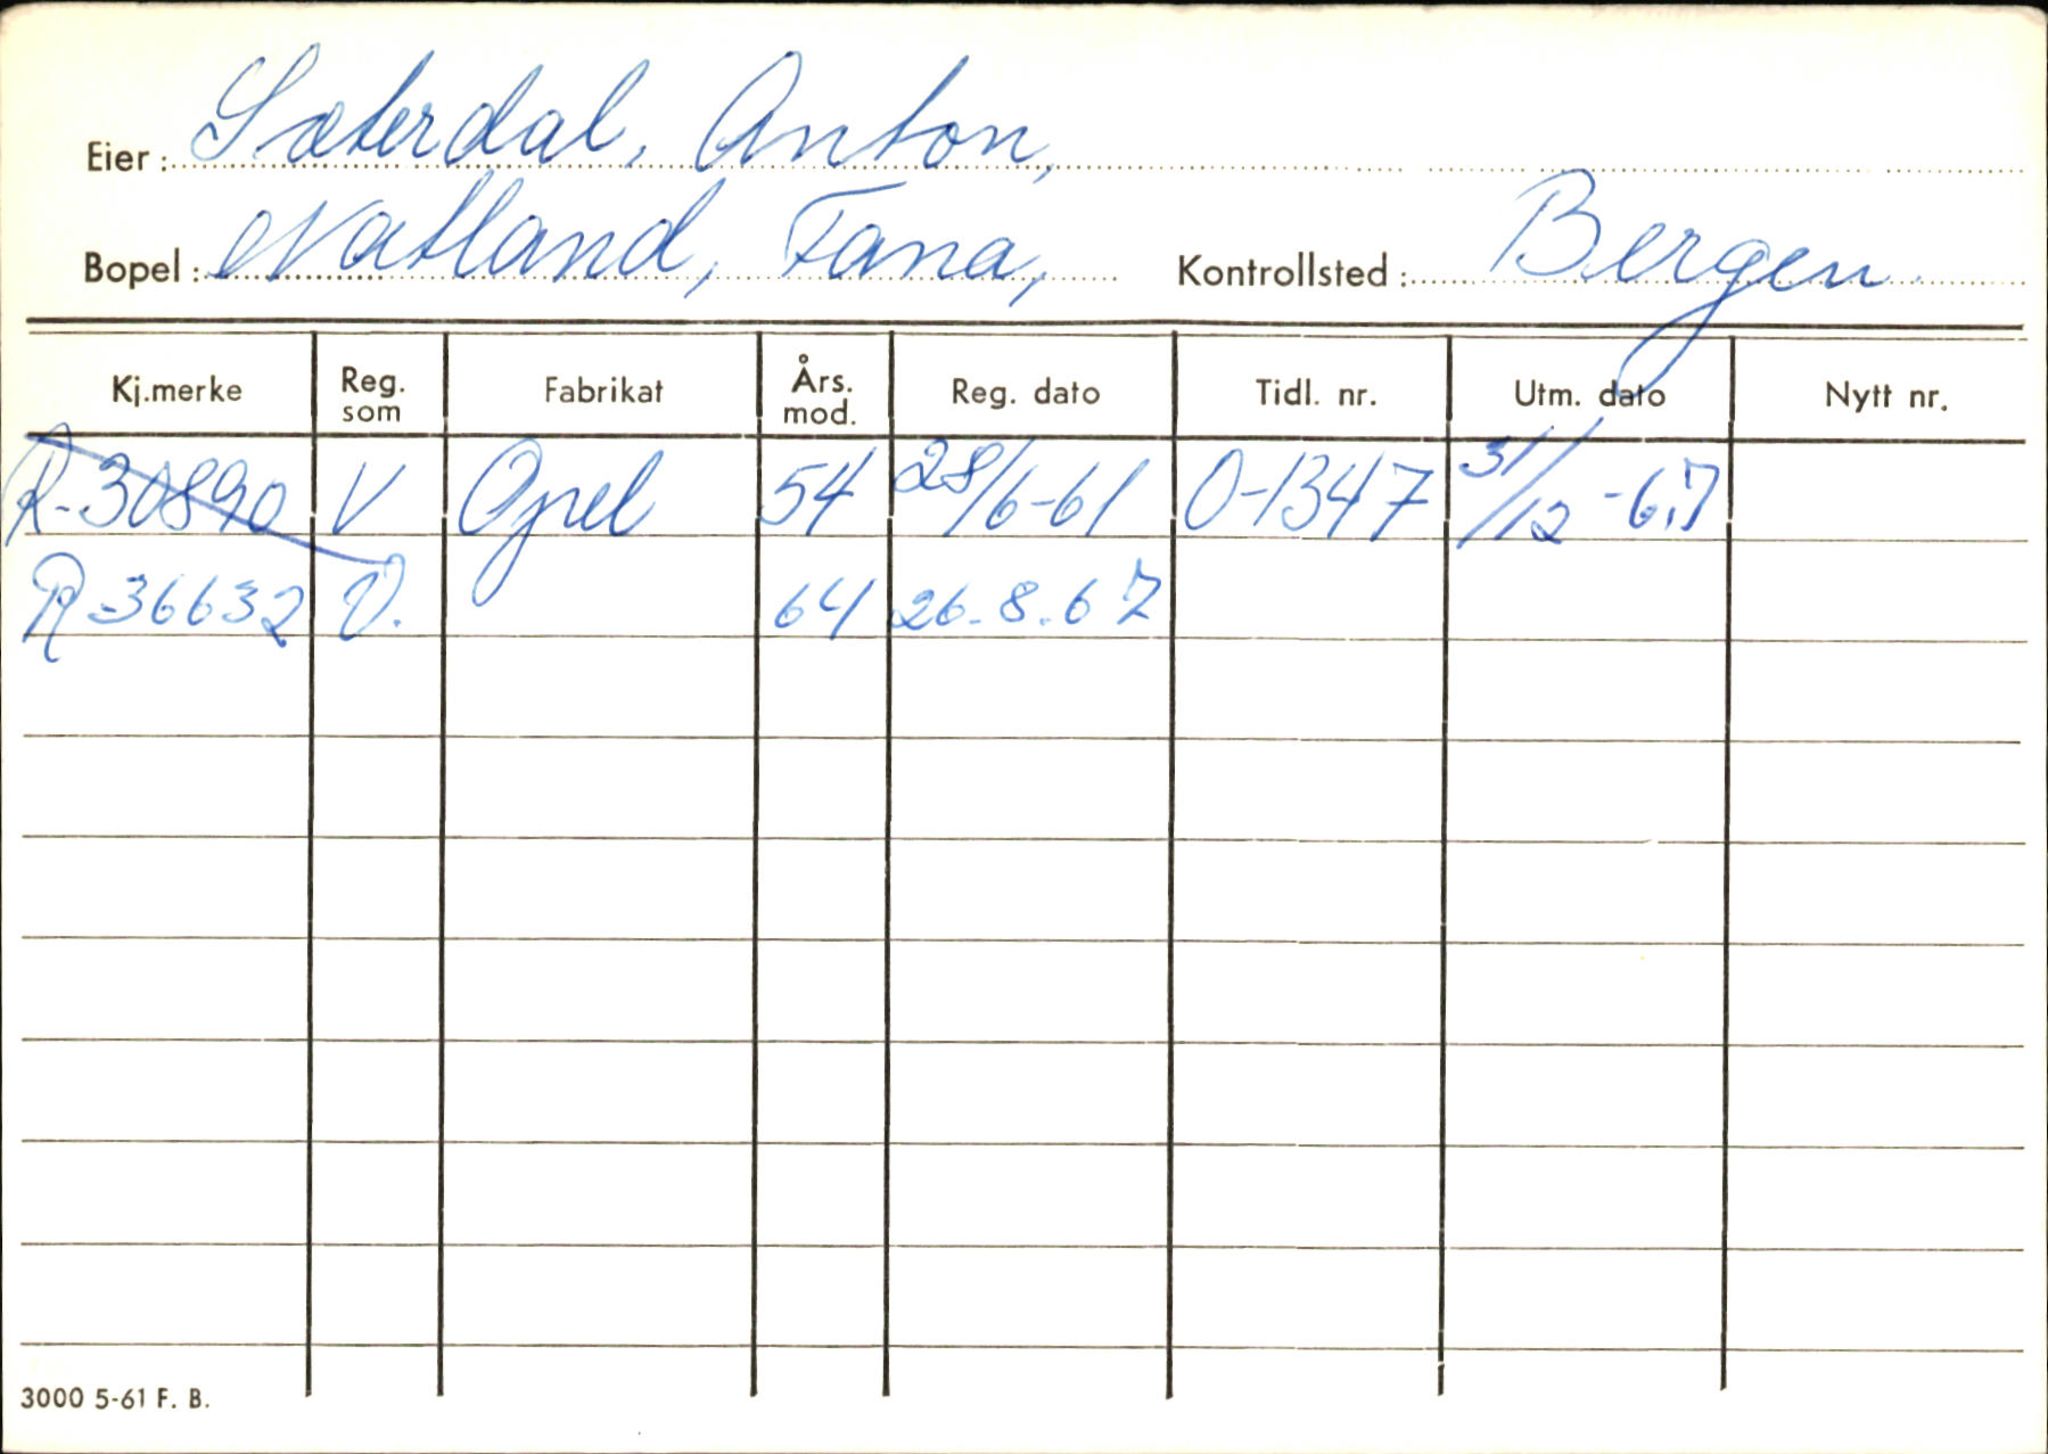 Eier: Sæterdal, Anton,
Bopel: Natland, Fana, Kontrollsted: Bergen.
Kj.merke Reg. som Fabrikat Års. mod. Reg. dato Tidl. nr. Utm. dato Nytt nr.
R-30890 V Opel 54 28/6-61 O-1347 31/12-67
R-36632 V. 64 26.8.67
3000 5-61 F. B.